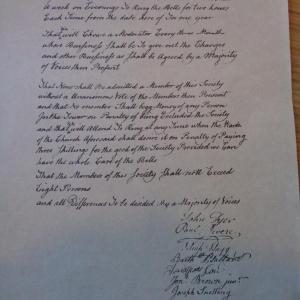 a week on Evenings To Ring the Bells for two hours
Each Time from the date here of for one year
That will Chose a Moderator Every three Months
whose Business Shall be To give out the Changes
and other Business as Shall be Agreed by a Majority
of Voices then Present
That None Shall be Admitted a Member of this Society
without a Unanimous Vote of the Members then Present
and that No member Shall begg Money of any Person
In the Tower on Penalty of being Excluded the Society
and that will Attend To Ring at any Time when the Wardens
of the Church Aforesaid shall desire it on Penalty of Paying
three Shillings for the good of the Society Provided we Can
have the whole Care of the Bells
That the Members of this Society Shall not Exceed
Eight Persons
and all Differences To be decided By a Majority of Voices
John Dyer
Paul Revere
Josiah Flagg
Barth Ballard
Jonathan
Jon Brown junr
Joseph Snelling